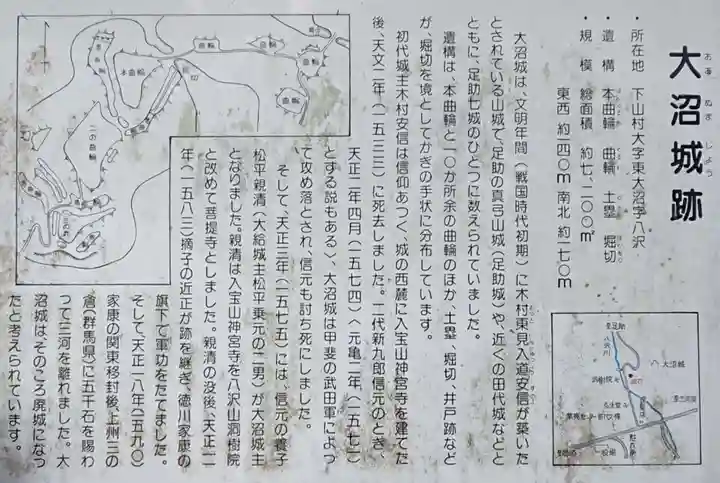 大沼城跡
おおぬまじょう
・所在地　下山村大字東大沼字八沢
・遺　構　本曲輪　曲輪　土塁　堀切
・規　模　総面積　約七、二〇〇㎡
東西 約一四〇m 南北 約一七〇m
大沼城は、文明年間（戦国時代初期）に木村東見入道安信が築いた
とされている山城で、足助の真弓山城（足助城）や、近くの田代城などと
ともに、足助七城のひとつに数えられていました。
遺構は、本曲輪と一〇か所余の曲輪のほか、土塁、堀切、井戸跡など
が、堀切を境としてかぎの手状に分布しています。
初代城主木村安信は信仰あつく、城の西麓に入宝山神宮寺を建てた
後、天文二年（一五三三）に死去しました。二代新九郎信元のとき、
天正二年四月（一五七四）〈元亀二年（一五七一）
とする説もある〉、大沼城は甲斐の武田軍によっ
て攻め落とされ、信元も討ち死にしました。
そして、天正三年（一五七五）には、信元の養子
松平親清（大給城主松平乗元の二男）が大沼城主
となりました。親清は入宝山神宮寺を八沢山洞樹院
と改めて菩提寺としました。親清の没後、天正一一
年（一五八三）摘子の近正が跡を継ぎ、徳川家康の
旗下で軍功をたてました。
そして天正一八年（一五九〇）
家康の関東移封後、上州三の
倉（群馬県）に五千石を賜わ
って三河を離れました。大
沼城は、そのころ廃城になっ
たと考えられています。
曲輪
曲輪
曲輪
曲輪
本曲輪
堀切
二の曲輪
至足助
八沢川
大沼城
洞樹院